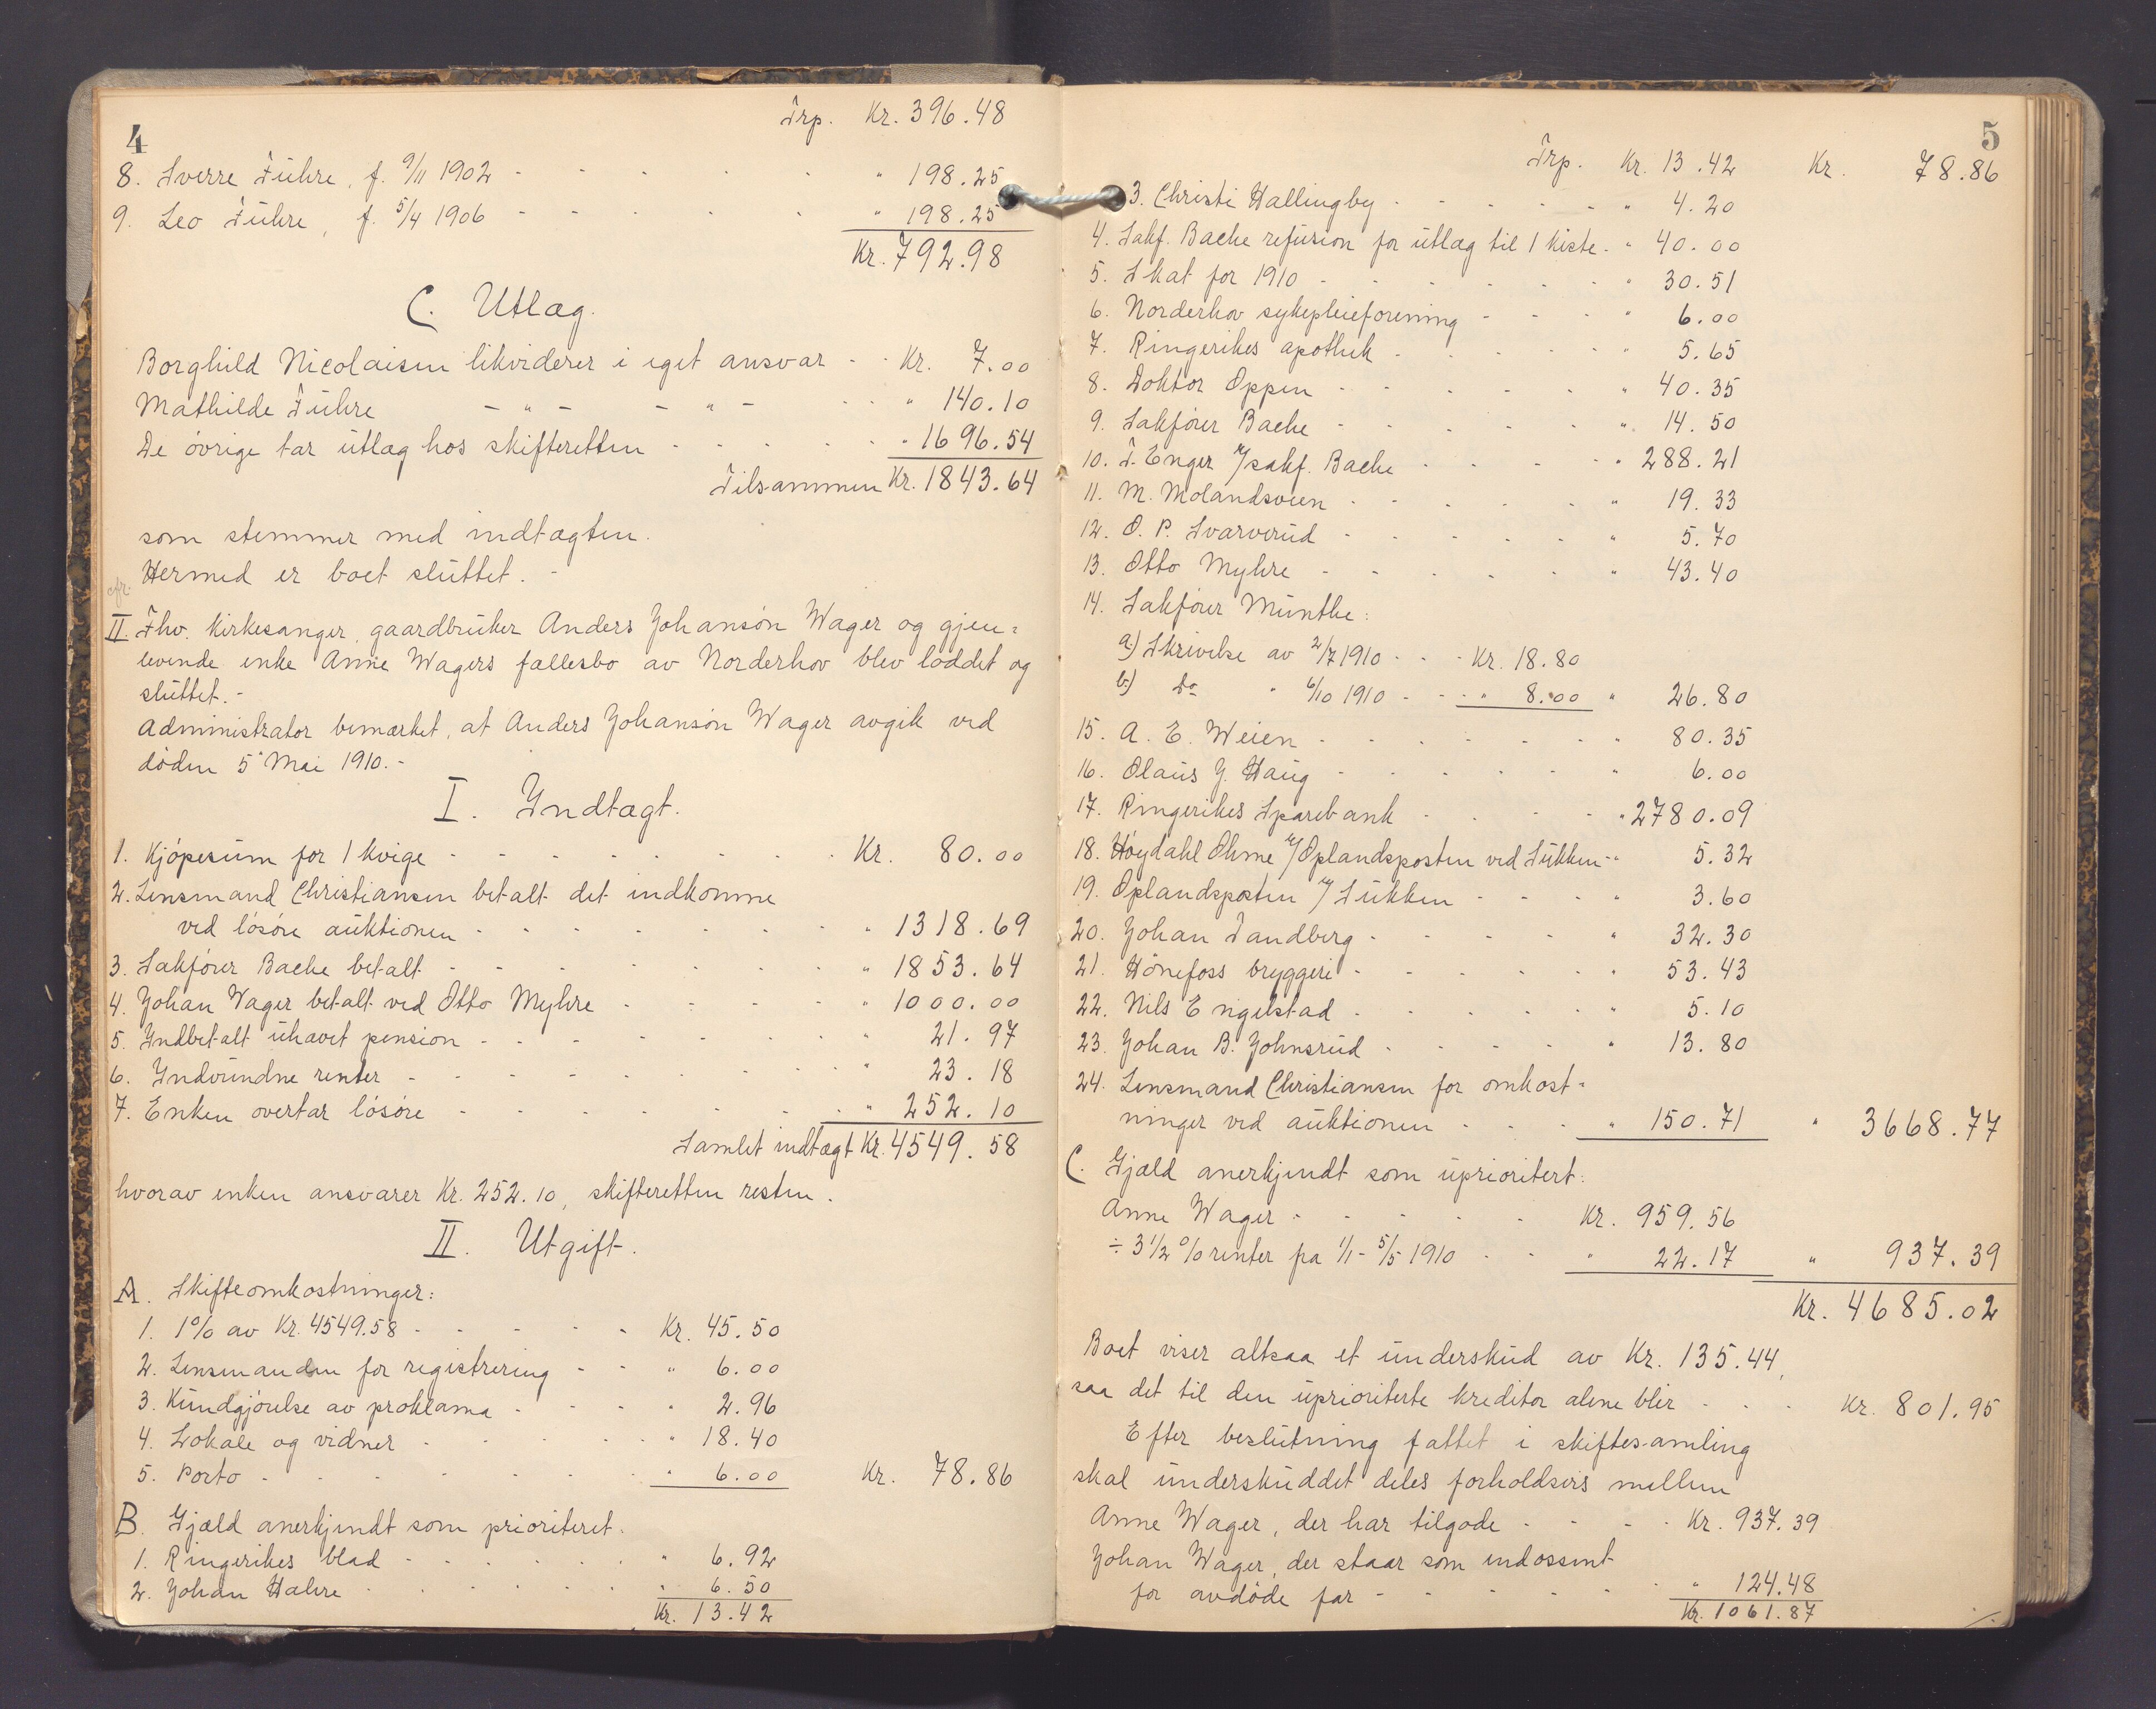 4
Trp. Kr. 396.48
8. Sverre Führe, f. 9/11 1902 - - - - - " 198.25
9. Leo Führe, f. 5/4 1906 - - - - - " 198.25
Kr. 792.98
C. Utlæg.
Borghild Nicolaisen likviderer i eget ansvar - - Kr. 7.00
Mathilde Führe - " - - " - - - " 140.10
De övrige tar utlæg hos skifteretten - - - - - " 1696.54
Tilsammen Kr. 1843.64
som stemmer med indtægten.
Hermed er boet sluttet. -
cfr.
II. Fhv. kirkesanger, gaardbruker Anders Johansön Wager og gjen=
levende enke Anne Wagers fællesbo av Norderhov blev loddet og
sluttet. -
Administrator bemærket, at Anders Johansön Wager avgik ved
döden 5 Mai 1910. -
I. Indtægt.
1. Kjöpesum for 1 kvige - - - - - - - Kr. 80.00
2. Lensmand Christiansen betalt det indkomne
ved lösöre auktionen - - - - - - - " 1318.69
3. Sakförer Bache betalt - - - - - - - " 1853.64
4. Johan Wager betalt ved Otto Myhre - - - - " 1000.00
5. Indbetalt uhævet pension - - - - - - " 21.97
6. Indvundne renter - - - - - - - " 23.18
7. Enken overtar lösöre - - - - - - - " 252.10
Samlet indtægt Kr. 4549.58
hvorav enken ansvarer Kr. 252.10, skifteretten resten.
II. Utgift.
A. Skifteomkostninger:
1. 1% av Kr. 4549.58 - - - - - Kr. 45.50
2. Lensmanden for registrering - - " 6.00
3. Kundgjörelse av proklama - - - " 2.96
4. Lokale og vidner - - - - - " 18.40
5. Porto - - - - - - - " 6.00 Kr. 78.86
B. Gjæld anerkjendt som prioriteret.
1. Ringerikes blad - - - - - - " 6.92
2. Johan Hahre - - - - - - " 6.50
Kr. 13.42
5
Trp. Kr. 13.42 Kr. 78.86
3. Christi Hallingby - - - - - " 4.20
4. Sakf. Bache refusion for utlæg til 1 kiste - " 40.00
5. Skat for 1910 - - - - - - " 30.51
6. Norderhov sykepleieforening - - - " 6.00
7. Ringerikes apothek - - - - - " 5.65
8. Doktor Oppen - - - - - - " 40.35
9. Sakförer Bache - - - - - - " 14.50
10. T. Enger v/ sakf. Bache - - - - " 288.21
11. M. Molandsveen - - - - - " 19.33
12. O. P. Svarverud - - - - - " 5.70
13. Otto Myhre - - - - - - " 43.40
14. Sakförer Munthe:
a) Skrivelse av 2/7 1910 - - - Kr. 18.80
b) Do " 6/10 1910 - - - " 8.00 " 26.80
15. A. E. Weien - - - - - - " 80.35
16. Olaus J. Haug - - - - - - " 6.00
17. Ringerikes Sparebank - - - - " 2780.09
18. Höydahl Ohme v/ Oplandsposten ved Lükken - " 5.32
19. Oplandsposten v/ Lükken - - - - " 3.60
20. Johan Tandberg - - - - - " 32.30
21. Hönefoss bryggeri - - - - - " 53.43
22. Nils Engelstad - - - - - " 5.10
23. Johan B. Johnsrud - - - - - " 13.80
24. Lensmand Christiansen for omkost=
ninger ved auktionen - - - - " 150.71 " 3668.77
C. Gjæld anerkjendt som uprioritert:
Anne Wager - - - - - - Kr. 959.56
÷ 3 1/2 % renter fra 1/1 - 5/5 1910 - - " 22.17 " 937.39
Kr. 4685.02
Boet viser altsaa et underskud av Kr. 135.44,
saa det til den uprioriterte kreditor alene blir - - - Kr. 801.95
Efter beslutning fattet i skiftesamling
skal underskuddet deles forholdsvis mellem
Anne Wager, der har tilgode - - - - Kr. 937.39
Johan Wager, der staar som endossent
for avdöde far - - - - - - " 124.48
Kr. 1061.87